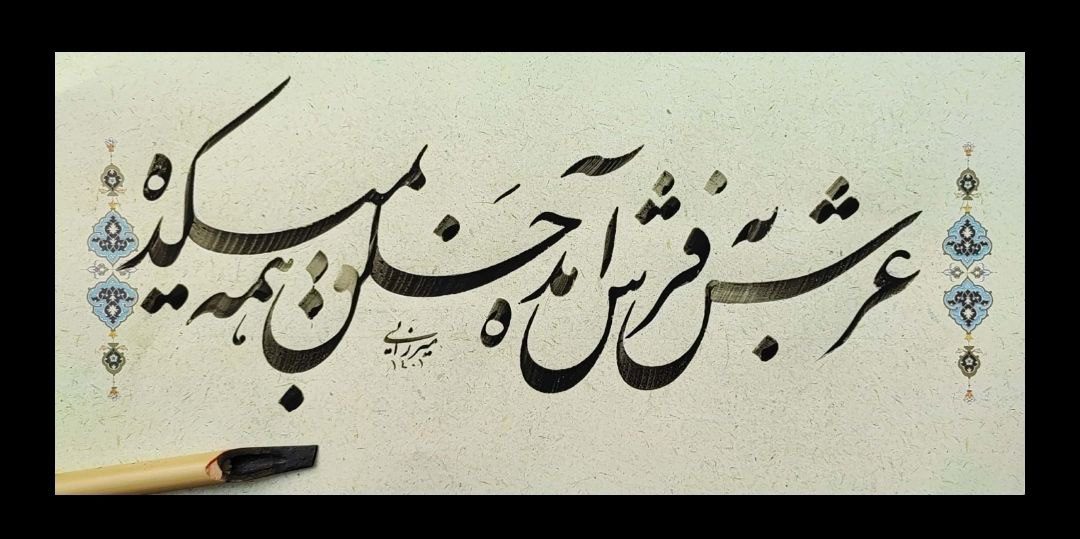 عرش به فرش آمده خَلق همه بمیکده
میرزایی
۱۴۰۱